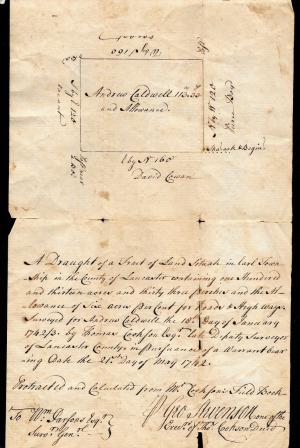 vacant
W by S 160
Andrew Caldwell 113a. 33
and Allowance
N by W 120
Pierre Boyd
S by E 120
vacant
E by N 160
David Cowan
A Draught of a Tract of Land Situate in Earl Town
Ship in the County of Lancaster containing one Hundred
and thirteen acres and thirty three perches and the Al=
lowance of Six acres per Cent for Roads & High ways
Surveyed for Andrew Caldwell the 18th Day of January
1742/3 by Thomas Cookson Esqr. late Deputy Surveyor
of Lancaster County in Pursuance of a Warrant bear
ing Date the 21st Day of may 1742.
Protracted and Calculated from Mr. Cookson's Field Book
To Wm. Parsons Esqr.
Survr. Genl.
Geo: Stevenson one of the
Execrs. of Tho. Cookson Decd.